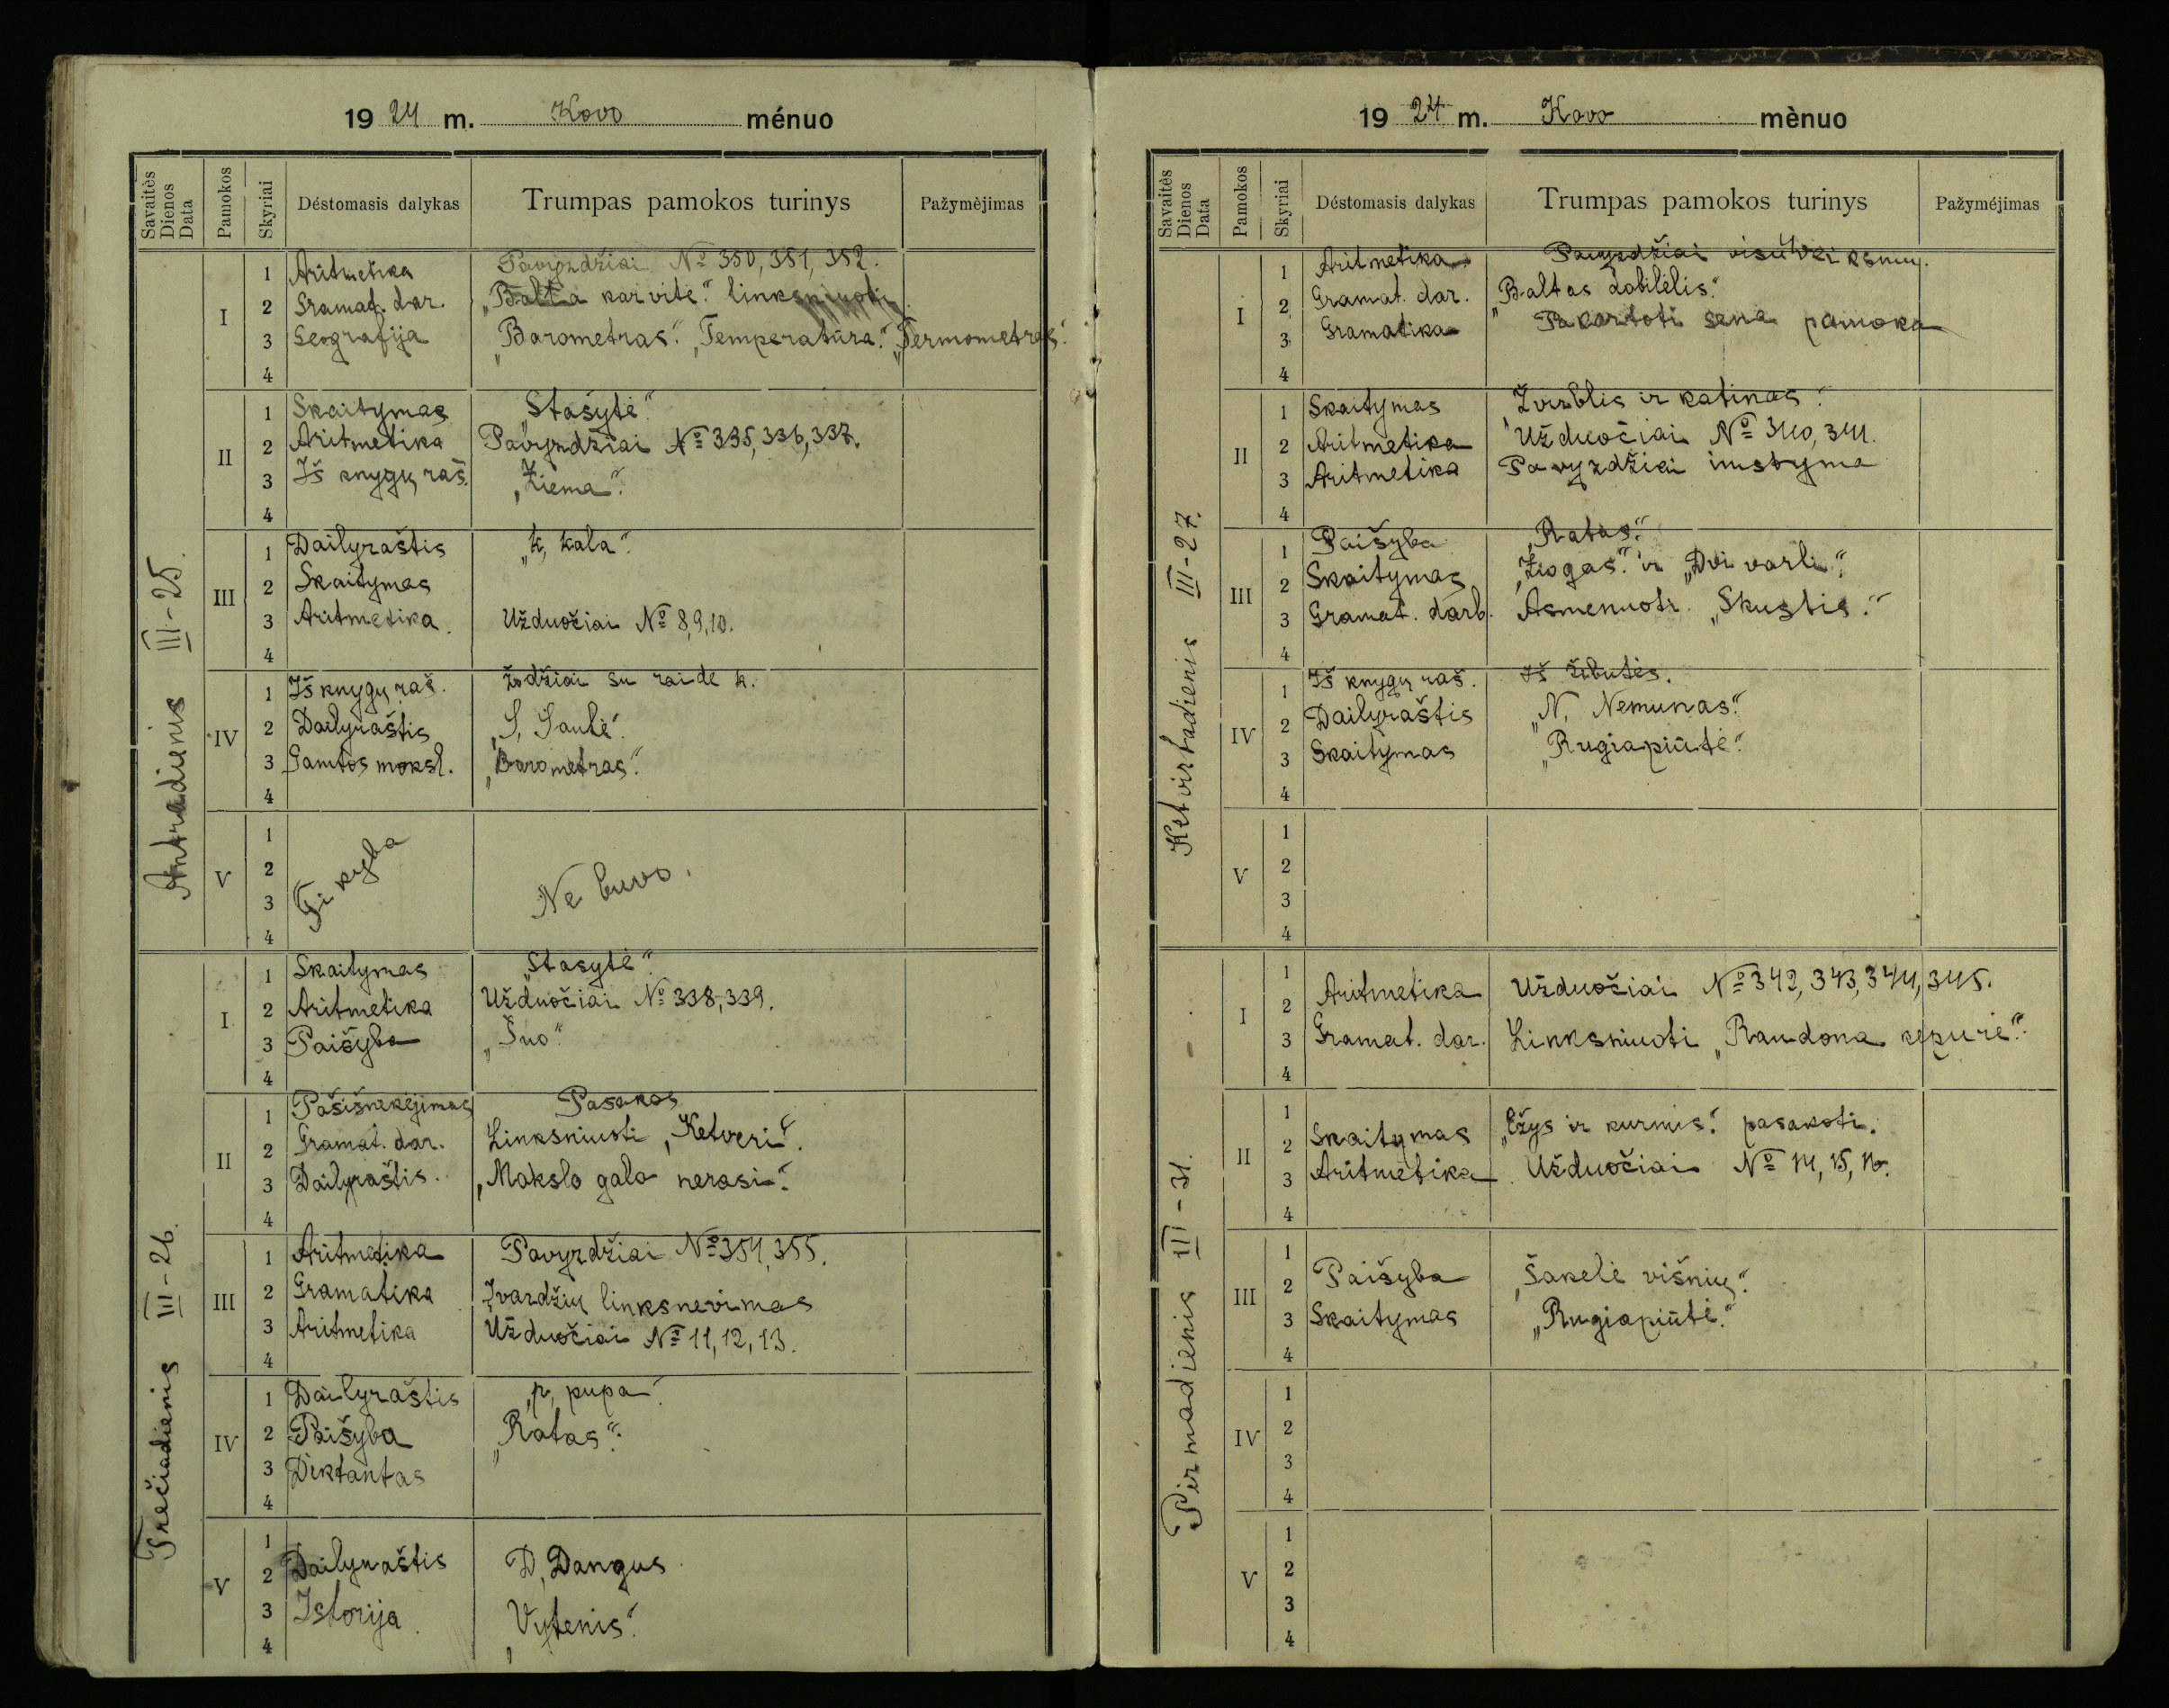 19 24 m. Kovo ménuo
Savaitès Dienos Data
Pamokos
Skyriai
Déstomasis dalykas
Trumpas pamokos turinys
Pažymèjimas
Antradienis III-25.
I
1 Aritmetika Pavyzdžiai № 350, 351, 352.
2 Gramat. dar. „Balta karvitė“. linksniuoti
3 Geografija „Barometras“. „Temperatūra“. „Termometras“.
4
II
1 Skaitymas „Stasytė“.
2 Aritmetika Pavyzdžiai № 335, 336, 337.
3 Iš knygų raš. „Žiema“.
4
III
1 Dailyraštis „k, kala“.
2 Skaitymas
3 Aritmetika. Užduočiai № 8, 9, 10.
4
IV
1 Iš knygų raš. žodžiai su raide k.
2 Dailyraštis „S, Saulė“.
3 Gamtos moksl. „Barometras“.
4
V
1
2 Tikyba Ne buvo.
3
4
Trečiadienis III-26.
I
1 Skaitymas „Stasytė“.
2 Aritmetika Užduočiai № 338, 339.
3 Paišyba „Šuo“.
4
II
1 Pašišnekėjimas Pasakos
2 Gramat. dar. Linksniuoti „Ketveri“.
3 Dailyraštis. „Mokslo galo nerasi“.
4
III
1 Aritmetika Pavyzdžiai № 354, 355.
2 Gramatika Įvardžių linksnevimas
3 Aritmetika Užduočiai № 11, 12, 13.
4
IV
1 Dailyraštis „p, pupa“.
2 Paišyba „Ratas“.
3 Diktantas
4
V
1
2 Dailyraštis D, Dangus
3 Istorija „Vytenis“.
4
19 24 m. Kovo mènuo
Savaitès Dienos Data
Pamokos
Skyriai
Déstomasis dalykas
Trumpas pamokos turinys
Pažyméjimas
Ketvirtadienis III-27.
I
1 Aritmetika Pavyzdžiai visų veiksmų.
2 Gramat. dar. „Baltas dobilėlis“.
3 Gramatika Pakartoti sena pamoka
4
II
1 Skaitymas „Žvirblis ir katinas“.
2 Aritmetika Užduočiai № 340, 341.
3 Aritmetika Pavyzdžiai
4
III
1 Paišyba „Ratas“.
2 Skaitymas „Žiogas“. ir „Dvi varli“.
3 Gramat. darb. Asmenuoti „Skustis“.
4
IV
1 Iš knygų raš. Iš žibutės.
2 Dailyraštis „N, Nemunas“.
3 Skaitymas „Rugiapiūtė“.
4
V
1
2
3
4
Pirmadienis III-31.
I
1
2 Aritmetika Užduočiai № 342, 343, 344, 345.
3 Gramat. dar. Linksniuoti „Raudona kepurė“.
4
II
1
2 Skaitymas „Ežys ir kurmis“. pasakoti.
3 Aritmetika Užduočiai № 14, 15, 16.
4
III
1
2 Paišyba „Šakelė višnių“.
3 Skaitymas „Rugiapiūtė“.
4
IV
1
2
3
4
V
1
2
3
4